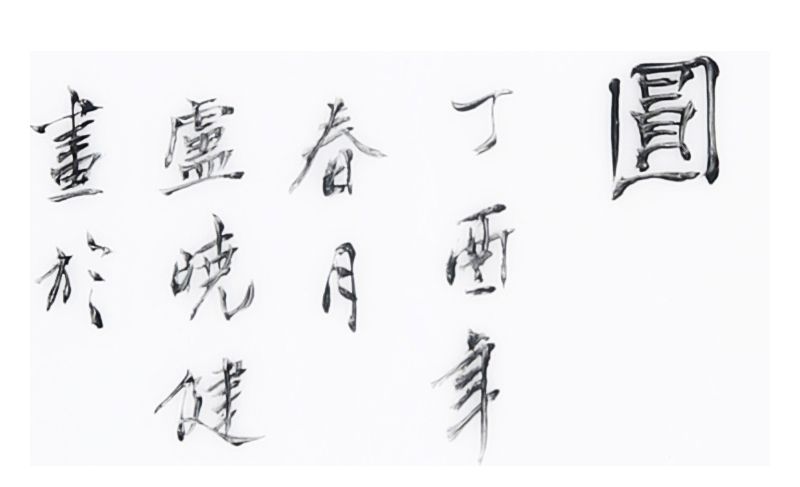 圓
丁酉年
春月
盧曉健
畫於